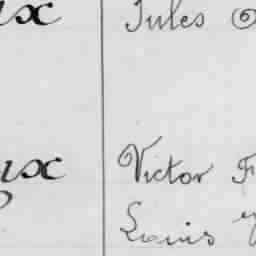 ux Jules
ux Victor F
Louis